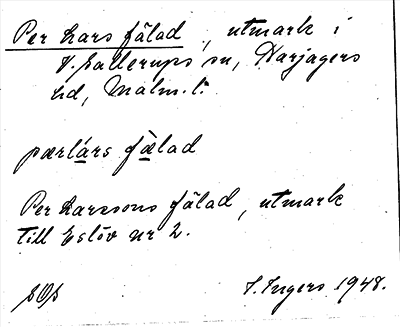 Per Lars fälad, utmark i
V. Sallerups sn, Harjagers
hd, Malm. l.
pærlárs fælad
Per Larssons fälad, utmark
till Eslöv nr 2.
I. Ingers 1948.